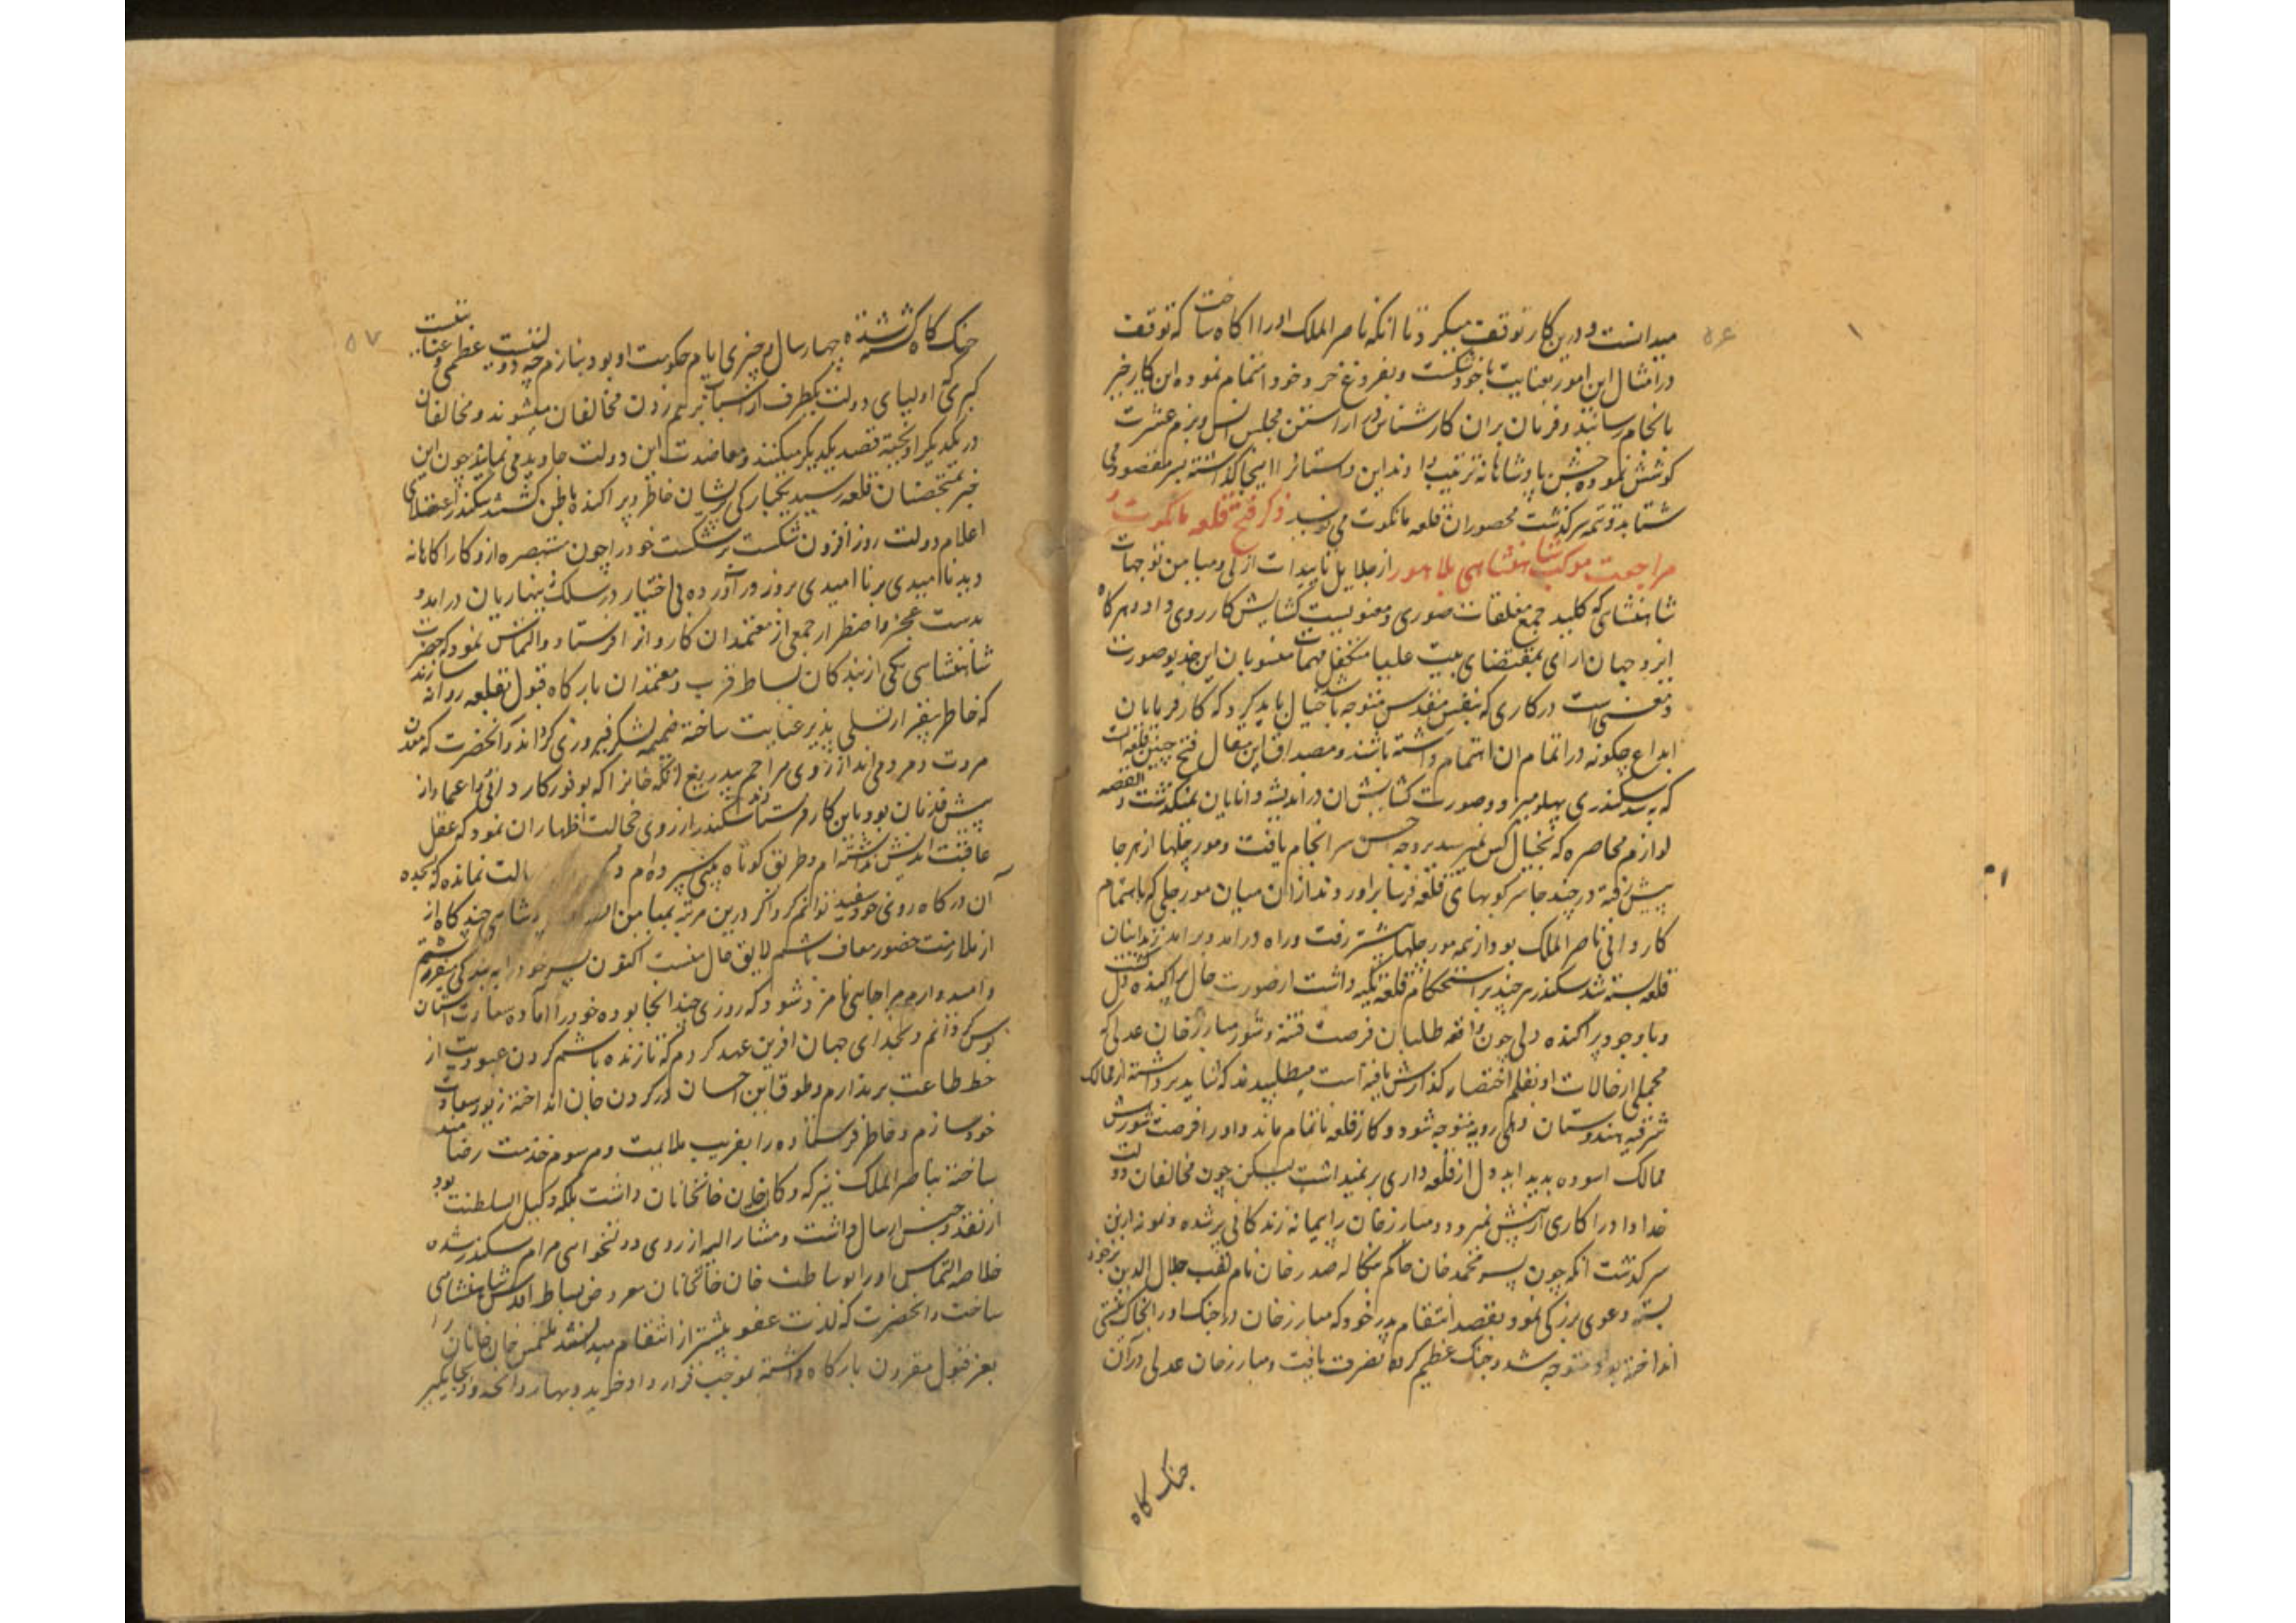 ۵۶
میدانست و درین کار توقف میکرد تا آنکه ناصر الملک او را آگاه ساخت که توقف
در امثال این امور بعنایت با خود شکست و بفروغ خرد خود اهتمام نموده این کار خیر
بانجام رسانید و فرمان بران کارشناس در آراستن مجلس انس و بزم عشرت
کوشش نموده جشن پادشاهانه ترتیب داد و این داستان را اینجا گذاشته بسر مقصود می
شتابد و تتمه سرگذشت محصوران قلعه مانکوت می نویسد ذکر فتح قلعه مانکوت و
مراجعت موکب شاهنشاهی بلاهور از جلایل تاییدات ازلی و میامن توجهات
شاهنشاهی که کلید جمیع مغلقات صوری و معنویست گشایش کار روی داد و هرگاه
ایزد جهان آرای بمقتضای مشیت علیا متکفل مهمات منسوبان این خدیو صورت
و معنیست در کاری که بنفس مقدس متوجه باشد خیال باید کرد که کارفرمایان
ابداع چگونه در اتمام آن اهتمام داشته باشند و مصداق این مقال فتح چنین قلعه است
که به سد سکندری پهلو میزد و صورت گشایش آن در اندیشه دانایان نمیگذشت القصه
لوازم محاصره که بخیال کس نمیرسید بروجه احسن سرانجام یافت و مورچلها از هر جا
پیش رفته در چند جا سرکوبهای قلعه فرسا برآوردند از آن میان مورچلی که باهتمام
کاردانی ناصر الملک بود از همه مورچلها پیشتر رفت و راه درآمد و برآمد بر اینان
قلعه بسته شد سکندر هر چند بر استحکام قلعه تکیه داشت از صورت حال پراکنده دل گشت
و با وجود پراکنده دلی چون واقعه طلبان فرصت فتنه و شور مبارز خان عدلی که
مجملی از حالات او بقلم اختصار گذارش یافته است میطلبیدند که شاید برداشته از ممالک
شرقیه هندوستان دهلی رویه متوجه شود و کار قلعه ناتمام ماند و او را فرصت شورش
ممالک آسوده پدید آید دل از قلعه داری بر نمیداشت لیکن چون مخالفان دولت
خداداد را کاری از پیش نمیرود و مبارز خان را پیمانه زندگانی پر شده و نمونه از این
سرگذشت آنکه چون پسر محمد خان حاکم بنگاله صدر خان نام لقب جلال الدین بر خود
بسته دعوی بزرگی نمود و بقصد انتقام پدر خود که مبارز خان در جنگ او را بخاک نیستی
انداخته بود متوجه شد و جنگ عظیم کرده نصرت یافت و مبارز خان عدلی در آن
جنگ گاه
۵۷
جنگ گاه کشته شد چهار سال و چیزی ایام حکومت او بود بنازم چه دولتیست عظمی و عنایتیست
کبری که اولیای دولت یکطرف از اسباب برهم زدن مخالفان میشوند و مخالفان
در یکدیگر آویخته قصد یکدیگر میکنند و معاضدت این دولت جاوید می نمایند چون این
خبر بمتحصنان قلعه رسید یکبارگی پریشان خاطر و پراکنده باطن گشتند سکندر
اعلام دولت روز افزون شکست بر شکست خود را چون مستبصره از و کار آگاهانه
دید ناامیدی بر ناامیدی بروز در آورده بی اختیار در سلک زینهاریان درآمد و
بدست عجز و اضطرار جمعی از معتمدان کاروان فرستاد و التماس نمود که حضرت
شاهنشاهی یکی از بندگان بساط قرب و معتمدان بارگاه قبول بقلعه روانه سازند
که خاطر بیقرار تسلی پذیر عنایت ساخته ضمیمه لشکر فیروزی گرداند و آنحضرت که معدن
مروت و مردمی اند از روی مراحم بیدریغ اتکه خان را که بوفور کاردانی و اعتماد از
پیش قدمان بود باین کار فرستادند سکندر از روی خجالت اظهار آن نمود که عقل
عاقبت اندیش نداشته ام و طریق کوتاه بینی سپرده ام و الت نمانده که بسجده
آن درگاه روی خود سفید توانم کرد اگر درین مرتبه بمیامن شاهی چند گاه از
از ملازمت حضور معاف باشم لایق حال منست اکنون پسر خود را به بندگی میفرستم
و امیدوارم بمن جایی نامزد شود که روزی چند آنجا بوده خود را آماده سعادت آستان
بوس گردانم و بخدای جهان آفرین عهد کردم که تا زنده باشم گردن عبودیت از
خط طاعت بر ندارم و طوق این احسان در گردن جان انداخته زیور سعادت
خود سازم و خاطر فرستاده را بفریب ملایمت و مرسوم خدمت رضامند
ساخته بناصر الملک نیز که وکیل خان خانخانان داشت بلکه وکیل السلطنت بود
از نقد و جنس ارسال داشت و مشارالیه از روی دولتخواهی مرام سکندر شده
خلاصه التماس او را بوساطت خان خانخانان معروض بساط اقدس شاهنشاهی
ساخت و آنحضرت که لذت عفو بیشتر از انتقام میدانند ملتمس خان خانان را
بعز قبول مقرون بارگاه داشته بموجب قرارداد خرید و بهار و آنحدود بجایگیر